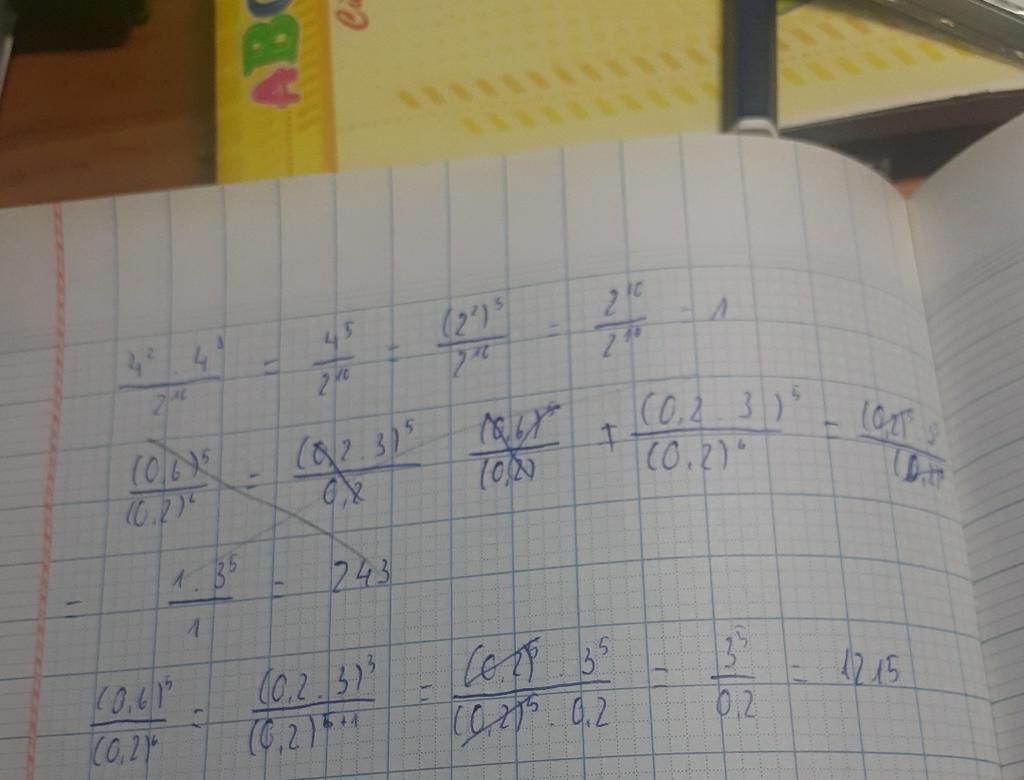 ABC
4² · 4³ / 2¹⁰ = 4⁵ / 2¹⁰ = (2²)⁵ / 2¹⁰ = 2¹⁰ / 2¹⁰ = 1
(0,6)⁵ / (0,2)⁶ = (0,2 · 3)⁵ / 0,2 (0,6)⁵ / (0,2) + (0,2 · 3)⁵ / (0,2)⁶ =
= 1 · 3⁵ / 1 = 243
(0,6)⁵ / (0,2)⁶ = (0,2 · 3)⁵ / (0,2)⁵⁺¹ = (0,2)⁵ · 3⁵ / (0,2)⁵ · 0,2 = 3⁵ / 0,2 = 1215